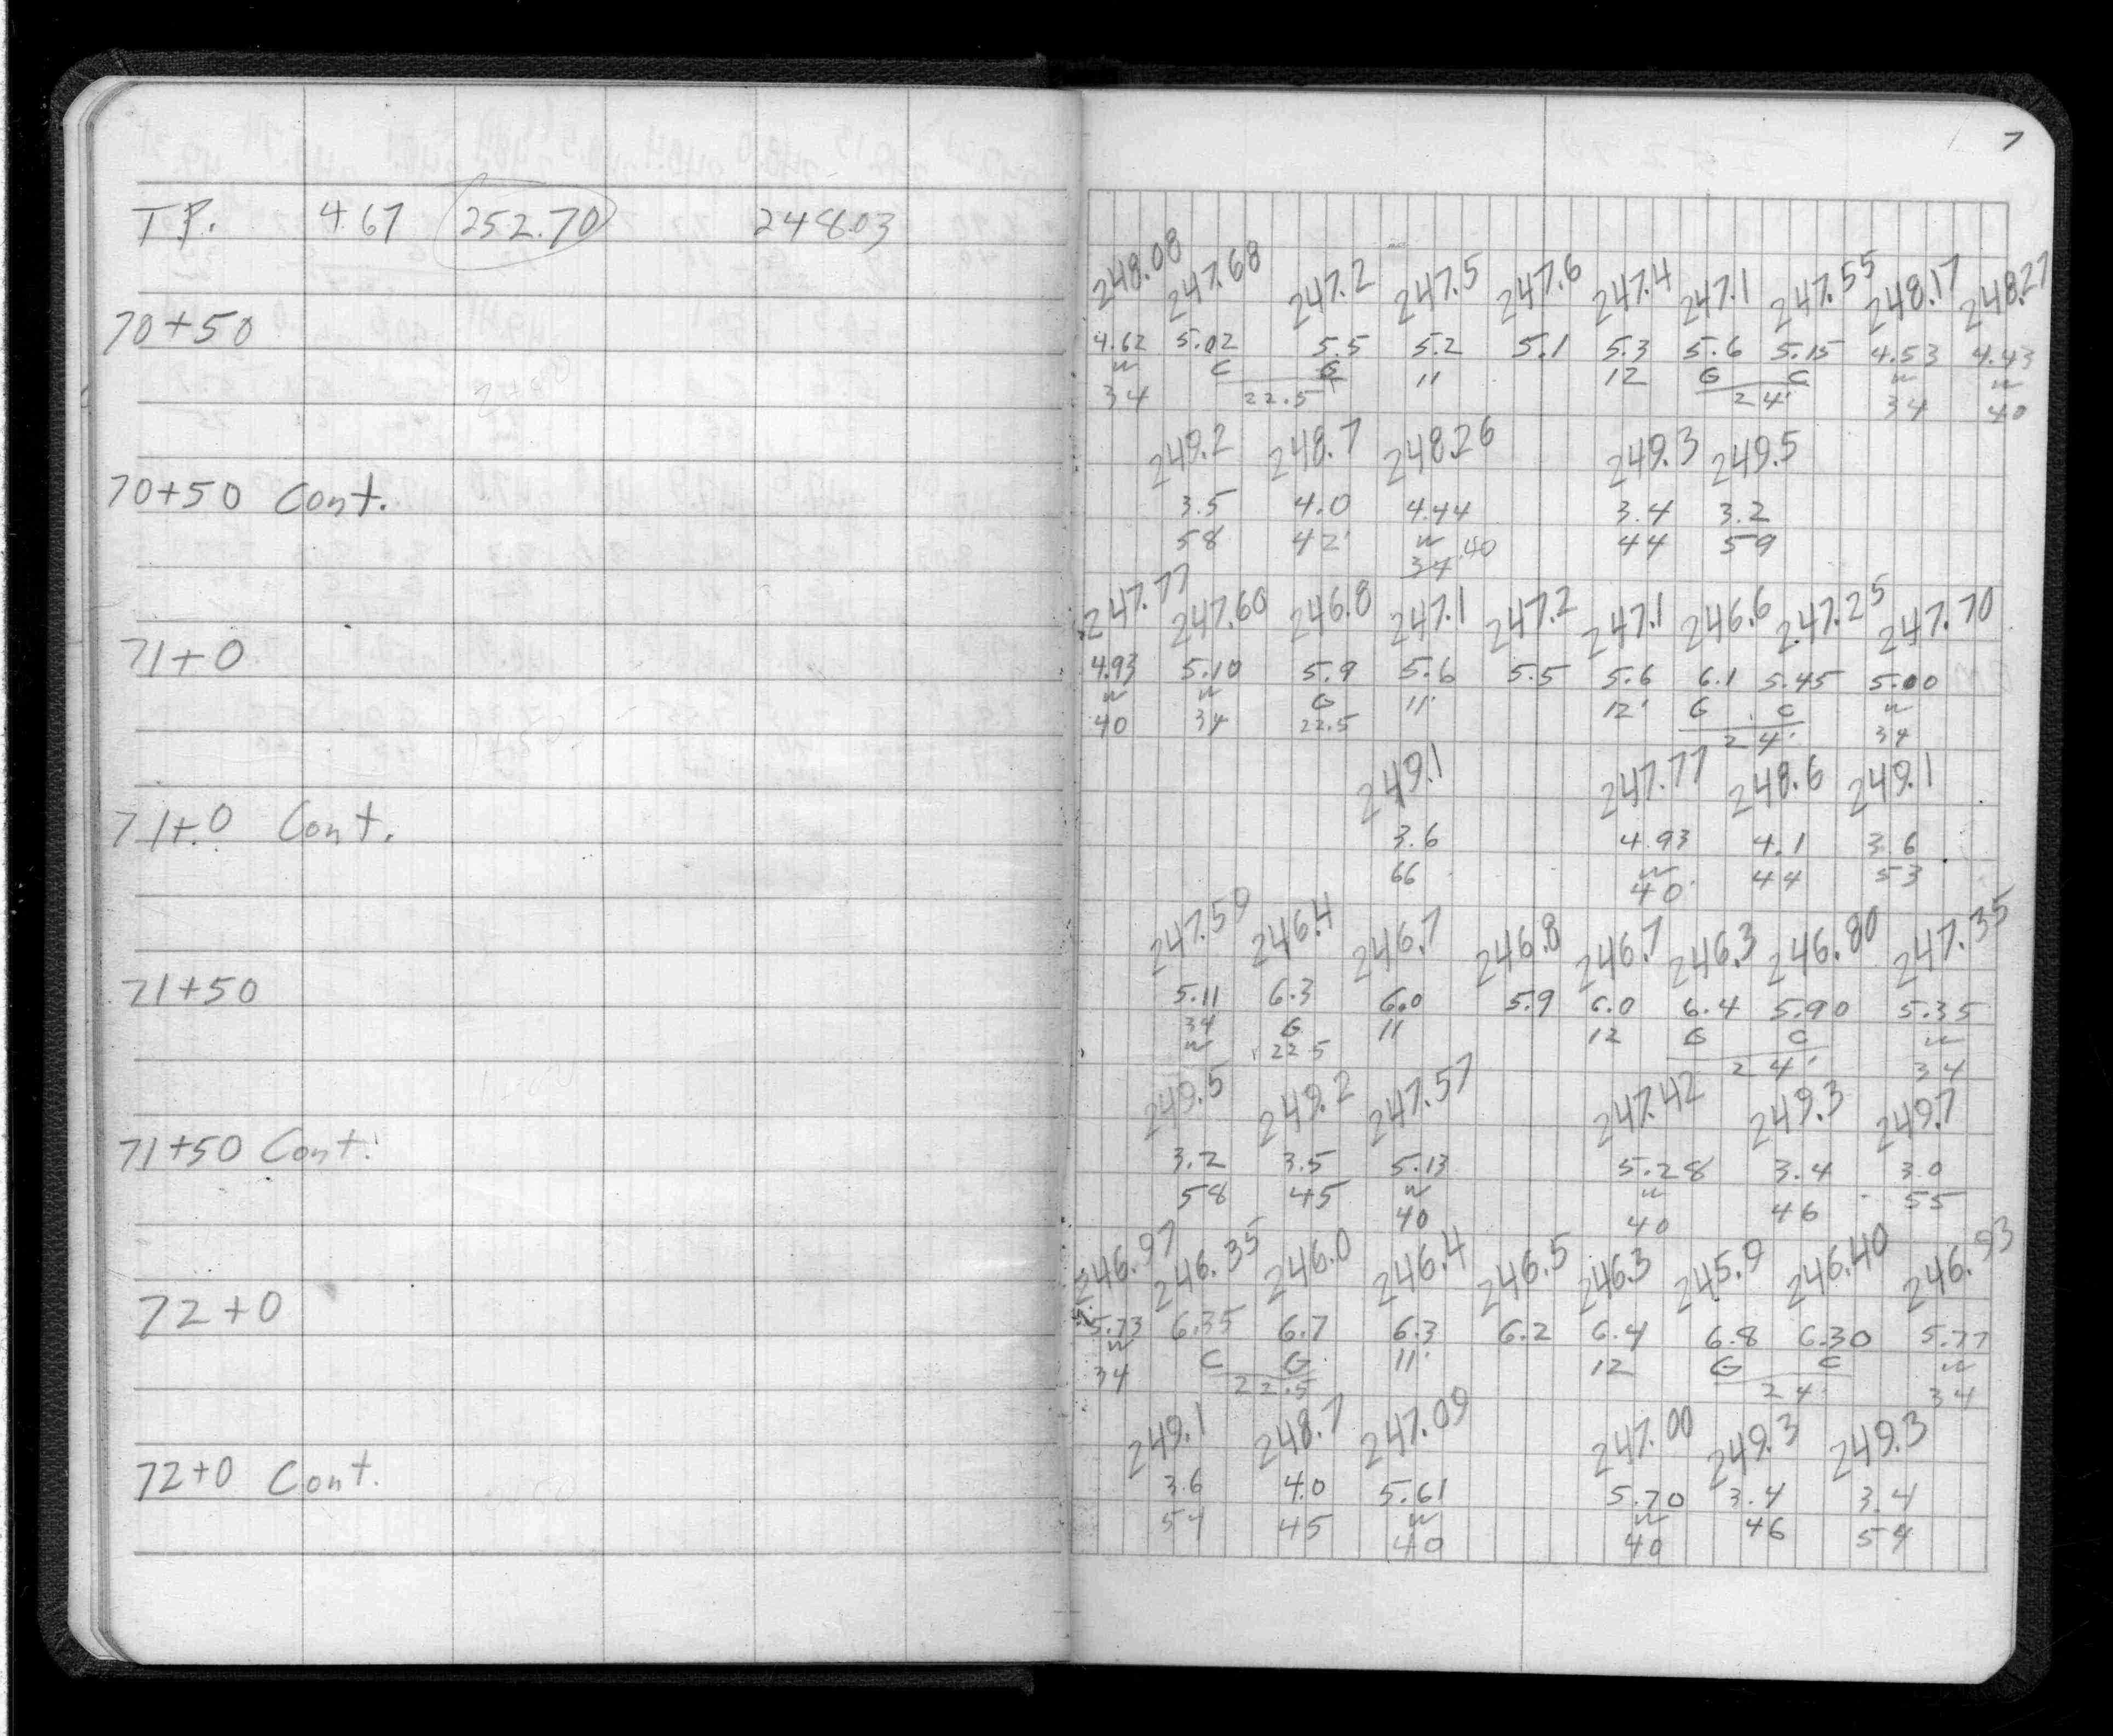 7
T.P. 4.67 252.70 248.03
248.08 247.68 247.2 247.5 247.6 247.4 247.1 247.55 248.17 248.27
70+50 4.62 5.02 5.5 5.2 5.1 5.3 5.6 5.15 4.53 4.43
w C G 11 12 G C w w
34 22.5 24' 34 40
249.2 248.7 248.26 249.3 249.5
70+50 Cont. 3.5 4.0 4.44 3.4 3.2
58 42' w 44 59
34 40
247.77 247.60 246.8 247.1 247.2 247.1 246.6 247.25 247.70
71+0 4.93 5.10 5.9 5.6 5.5 5.6 6.1 5.45 5.00
w w G 11' 12' G C w
40 34 22.5 24' 34
249.1 247.77 248.6 249.1
71+0 Cont. 3.6 4.93 4.1 3.6
66 w 44 53
40'
247.59 246.4 246.7 246.8 246.7 246.3 246.80 247.35
71+50 5.11 6.3 6.0 5.9 6.0 6.4 5.90 5.35
34 G 11 12 G C w
w 22.5 24' 34
249.5 249.2 247.57 247.42 249.3 249.7
71+50 Cont. 3.2 3.5 5.13 5.28 3.4 3.0
58 45 w w 46 55
40 40
246.97 246.35 246.0 246.4 246.5 246.3 245.9 246.40 246.93
72+0 5.73 6.35 6.7 6.3 6.2 6.4 6.8 6.30 5.77
w C G 11' 12 G C w
34 22.5 24' 34
249.1 248.7 247.09 247.00 249.3 249.3
72+0 Cont. 3.6 4.0 5.61 5.70 3.4 3.4
54 45 w w 46 54
40 40